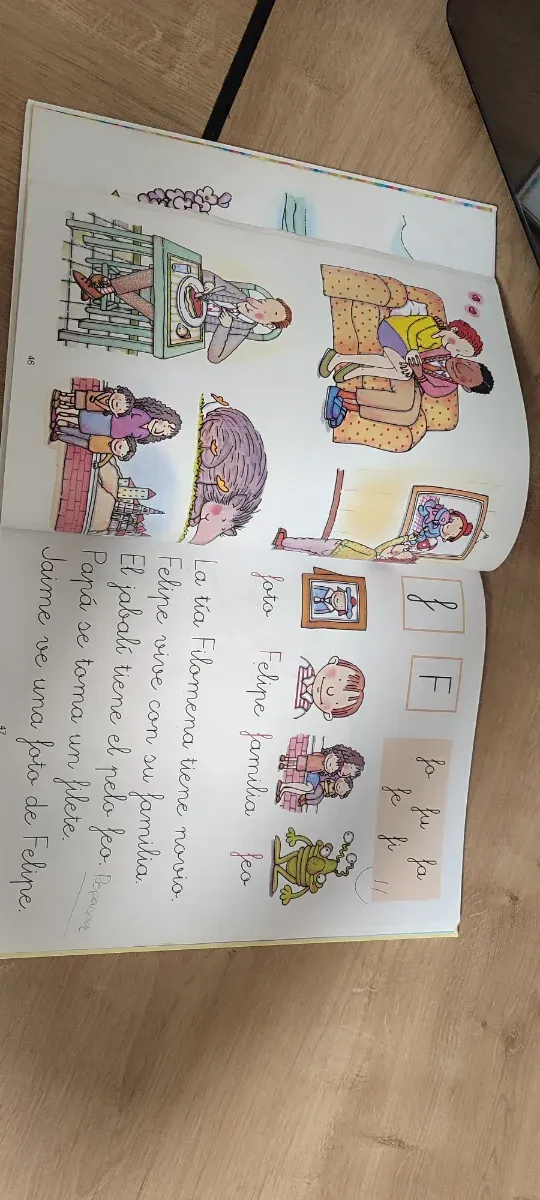 46
f F
fo fu fa
fe fi
foto Felipe familia feo
La tía Filomena tiene novio.
Felipe vive con su familia.
El jabalí tiene el pelo feo.
Papá se toma un filete.
Jaime ve una foto de Felipe.
Repasar
47